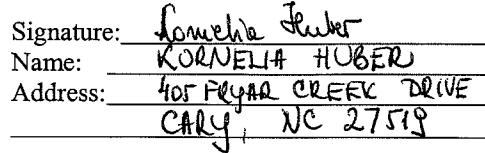 Signature: Kornelia Huber
Name: KORNELIA HUBER
Address: 405 FRYAR CREEK DRIVE
CARY, NC 27519